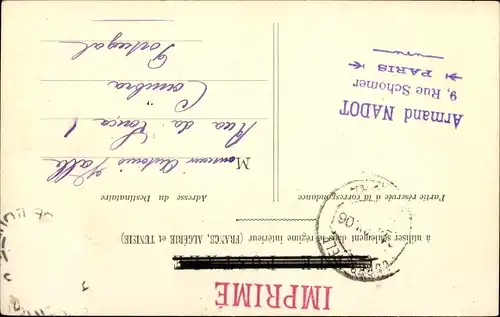 IMPRIMÉ
à utiliser seulement dans le régime intérieur (FRANCE, ALGÉRIE et TUNISIE)
Partie réservée à la correspondance
Adresse du Destinataire
Armand NADOT
9, Rue Schomer
PARIS
Monsieur Antonio
Rua da
Coimbra
Portugal